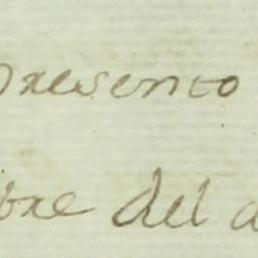 presento
bre del a